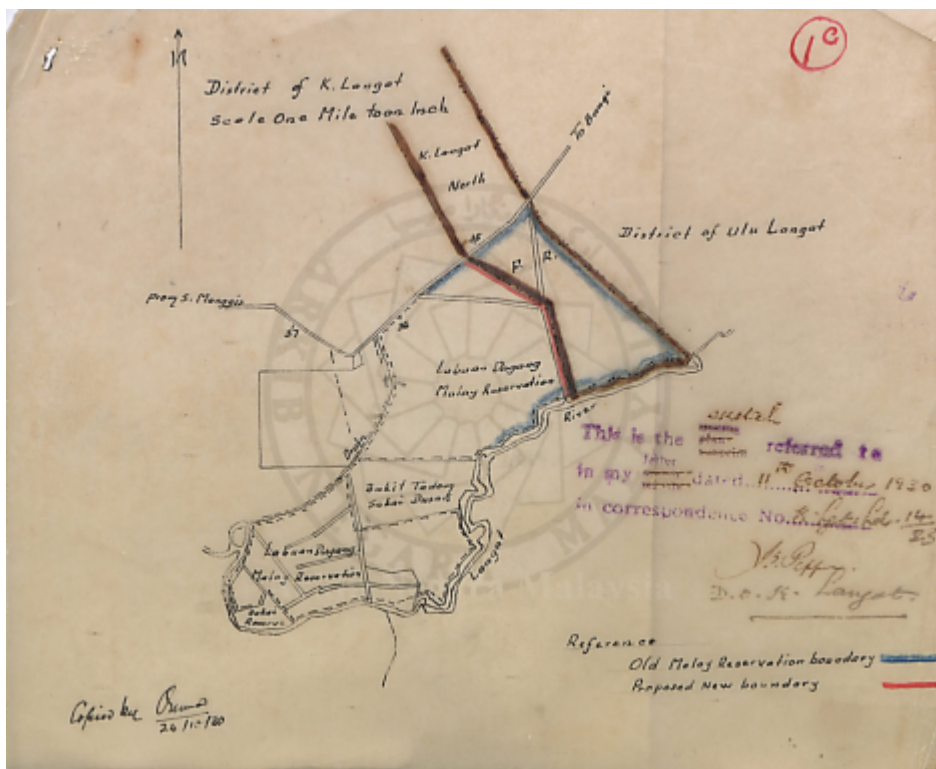 1c
N
District of K. Langat
Scale One Mile to an Inch
To Bangi
K. Langat
North
District of Ulu Langat
F. R.
From S. Manggis
37
36
Labuan Dagang
Malay Reservation
River
Bukit Tadong
Sakai
Langat
Labuan Dagang
Malay Reservation
Sakai
Reserve
sketch
This is the plan referred to
in my letter dated 11th October 1930
in correspondence No.
D.O. K. Langat.
Reference
Old Malay Reservation boundary
Proposed New boundary
Copied by